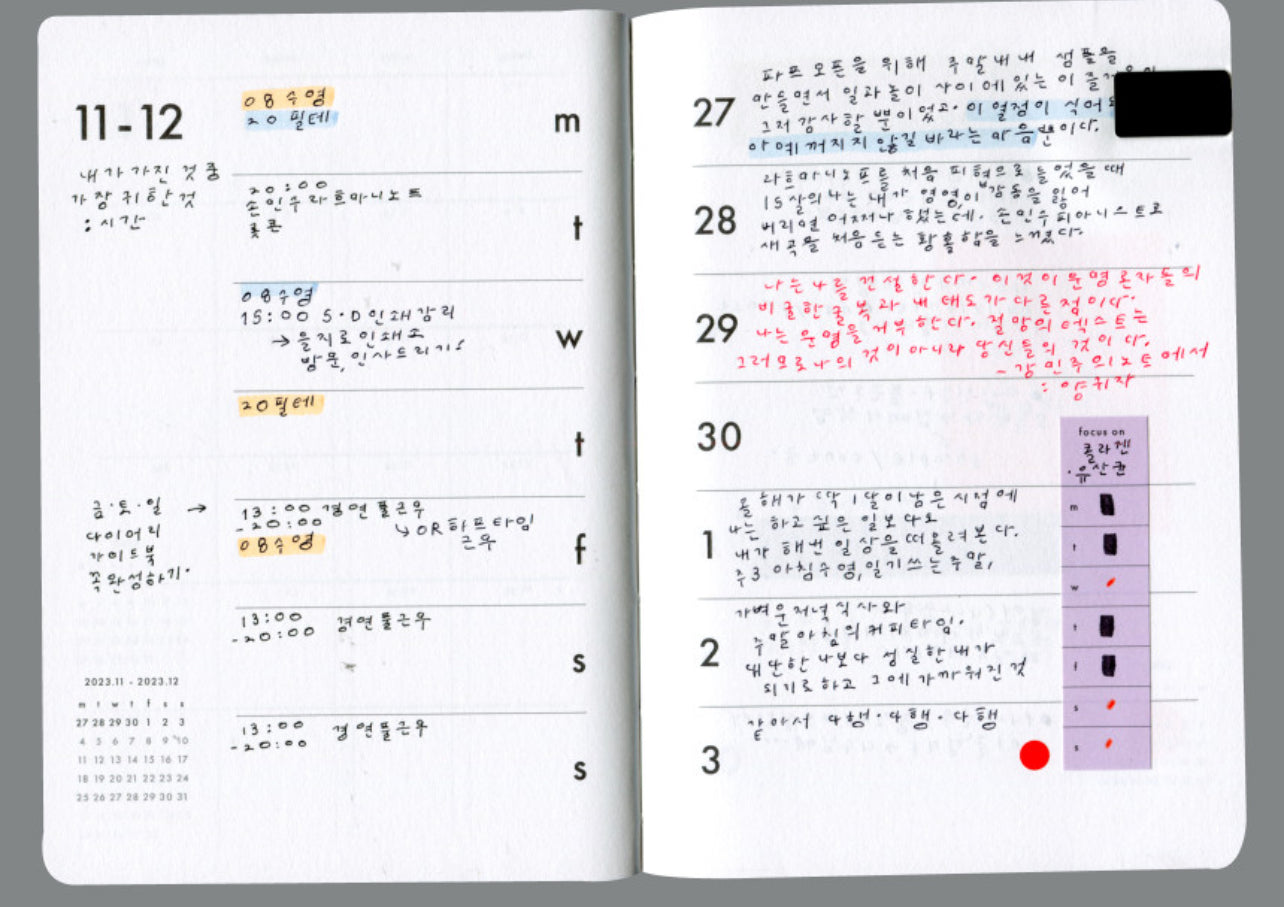 11-12
내가 가진 것 중
가장 귀한 것
: 시간
08 수영
20 필테
m
20:00
손민수 라흐마니노프
롯콘
t
08수영
15:00 S·D 인쇄감리
→ 을지로 인쇄소
방문, 인사드리기!
w
20 필테
t
금·토·일 →
다이어리
가이드북
꼭 완성하기·
13:00 경연풀근무
-20:00 ↳ OR 하프타임
08수영 근무
f
13:00 경연풀근무
-20:00
s
13:00 경연풀근무
-20:00
s
2023.11 - 2023.12
m t w t f s s
27 28 29 30 1 2 3
4 5 6 7 8 9 10
11 12 13 14 15 16 17
18 19 20 21 22 23 24
25 26 27 28 29 30 31
27
파프 오픈을 위해 주말내내 샘플을
만들면서 일과 놀이 사이에 있는 이
그저 감사할 뿐이었고. 이 열정이 식어
아예 꺼지지 않길 바라는 마음뿐이다.
28
라흐마니노프를 처음 피협으로 들었을 때
15살의 나는 내가 영영 이 감동을 잃어
버리면 어쩌나 했는데. 손민수 피아니스트로
새곡을 처음 듣는 황홀함을 느꼈다.
29
나는 나를 건설한다. 이것이 운명론자들의
비굴한 굴복과 내 태도가 다른 점이다.
나는 운명을 거부한다. 절망의 텍스트는
그러므로 나의 것이 아니라 당신들의 것이다.
- 강민주의 노트에서
: 양귀자
30
focus on
콜라겐
·유산균
m
t
w
t
f
s
s
1
올해가 딱 1달이 남은 시점에
나는 하고 싶은 일보다도
내가 해낸 일상을 떠올려본다.
주3 아침수영, 일기쓰는 주말,
2
가벼운 저녁식사와
주말 아침의 커피타임.
대단한 나보다 성실한 내가
되기로 하고 그에 가까워진 것
3
같아서 다행·다행·다행